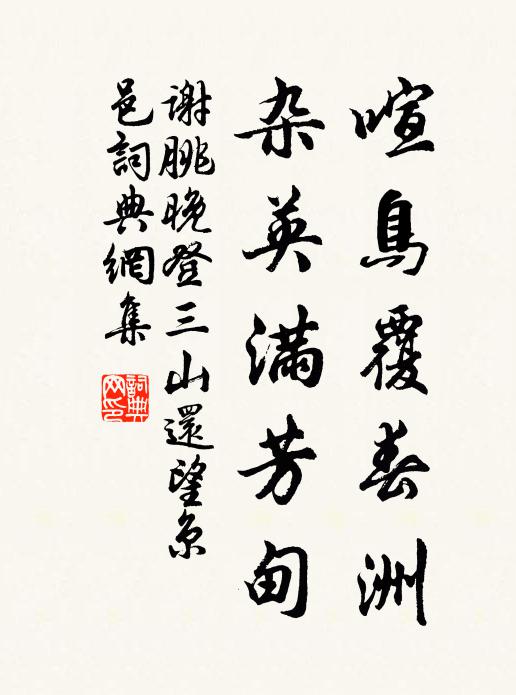 喧鳥覆春洲
杂英满芳甸
谢朓晚登三山還望京
邑詞典網集
詞典
网印